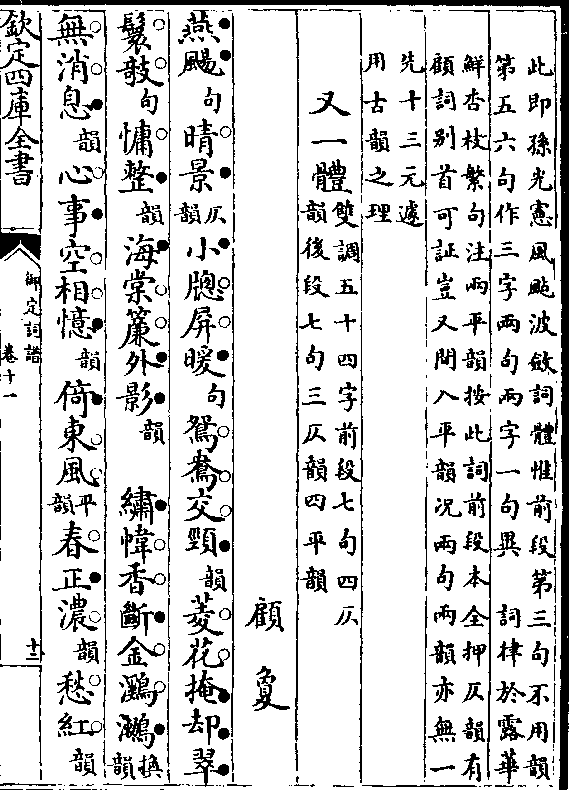 此即孫光憲風颭波斂詞體惟前段第三句不用韻
第五六句作三字兩句兩字一句異　詞律於露華
鮮杏枝繁句注兩平韻按此詞前段本全押仄韻有
顧詞别首可証豈又間入平韻况兩句兩韻亦無一
先十三元遽
用古韻之理
又一體雙調五十四字前段七句四仄
韻後段七句三仄韻四平韻
顧夐
燕颺句晴景仄韻小牕屏暖句鴛鴦交頸韻菱花掩却翠
鬟攲句慵整韻海棠簾外影韻　繡幃香斷金鸂鶒換韻
無消息韻心事空相憶韻倚東風平韻春正濃韻愁紅韻
欽定四庫全書
御定詞譜
卷十一
十三